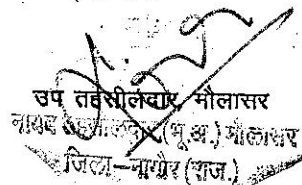 उप तहसीलदार, मौलासर
नायब तहसीलदार (भू.अ.) मौलासर
जिला-नागौर (राज.)